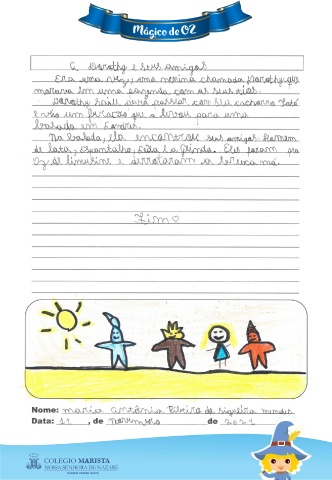 Mágico de OZ
A Dorothy e seus amigos
Era uma vez, uma menina chamada Dorothy que
morava em uma fazenda com os seus tios.
Dorothy saiu para passear com seu cachorro Totó
e veio um furacão que a levou para uma
em Londres.
Na balada, ela encontrou seus amigos: Homem
de lata, Espantalho, e a Glinda. Eles foram pra
Oz de limusine e derrotaram a bruxa má.
Fim
Nome: Maria Antônia Ribeiro da Mendes
Data: 11 , de novembro de 2021
COLÉGIO MARISTA
NOSSA SENHORA DE NAZARÉ